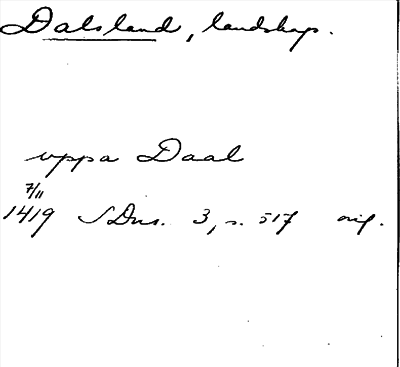 Dalsland, landskap.
uppa Daal
7/11
1419 SDns. 3, s. 517 orig.